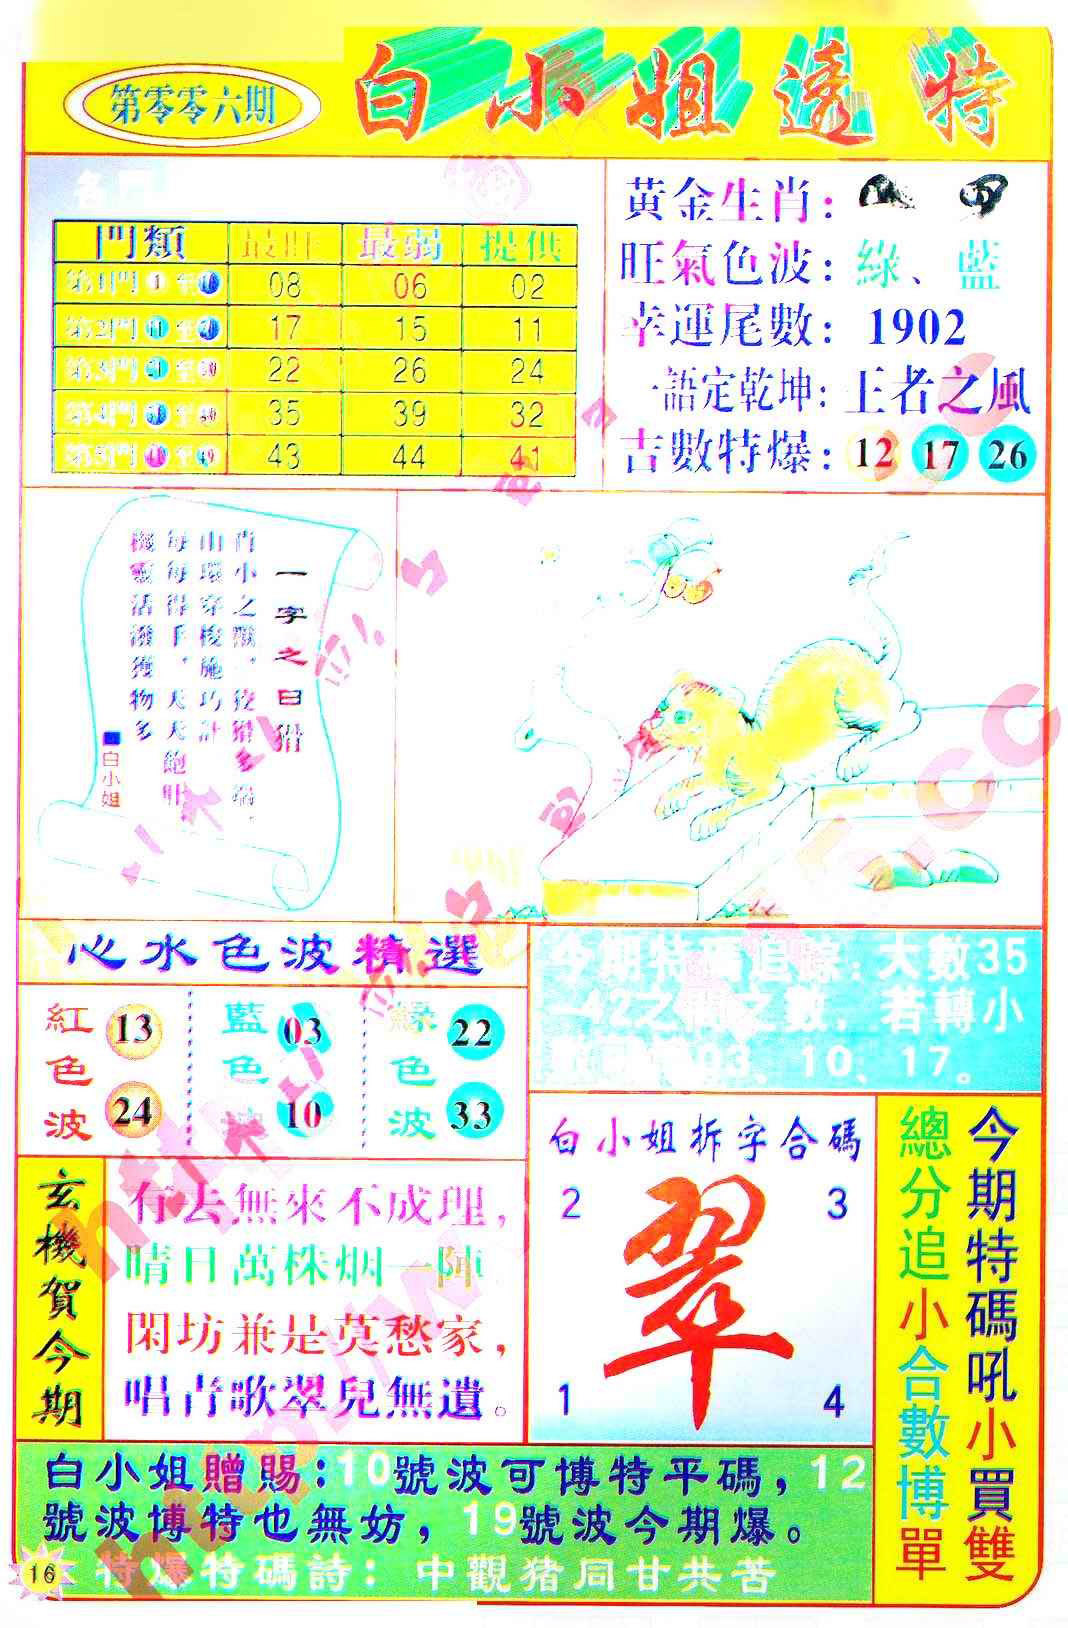 第零零六期
白小姐透特
門類 最旺 最弱 提供
第1門 1 至 10 08 06 02
第2門 11 至 20 17 15 11
第3門 22 26 24
第4門 35 39 32
第5門 至 49 43 44 41
黃金生肖：
旺氣色波：綠、藍
幸運尾數：1902
一語定乾坤：王者之風
吉數特爆：12 17 26
一字之曰猾
肖小之獸，狡猾多端，
山環穿梭施巧計
每每得手，天天飽肚
機靈活潑獲物多
白小姐
心水色波精選
紅色波 13 24
藍色波 03 10
綠色波 22 33
今期特碼追踪：大數35
-42之間之數，若轉小
03、10、17。
玄機賀今期
有去無來不成理，
晴日萬株烟一陣
閑坊兼是莫愁家，
唱青歌翠兒無遺。
白小姐拆字合碼
2 3
翠
1 4
今期特碼吼小買雙
總分追小合數博單
白小姐贈賜：10號波可博特平碼，12
號波博特也無妨，19號波今期爆。
特爆特碼詩：中觀猪同甘共苦
16